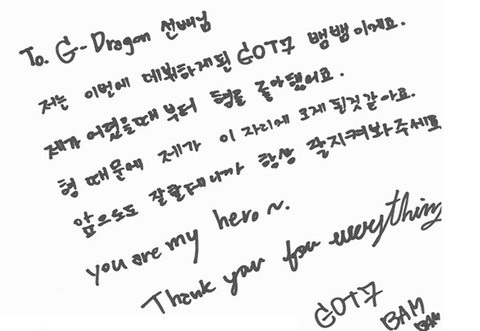 To. G-Dragon 선배님
저는 이번에 데뷔하게된 GOT7 뱀뱀이에요.
제가 어렸을때 부터 형을 좋아했어요.
형 때문에 제가 이 자리에 오게 된것같아요.
앞으로도 잘할테니까 항상 잘지켜봐주세요
you are my hero~.
Thank you for everything
GOT7
BAM
BAM